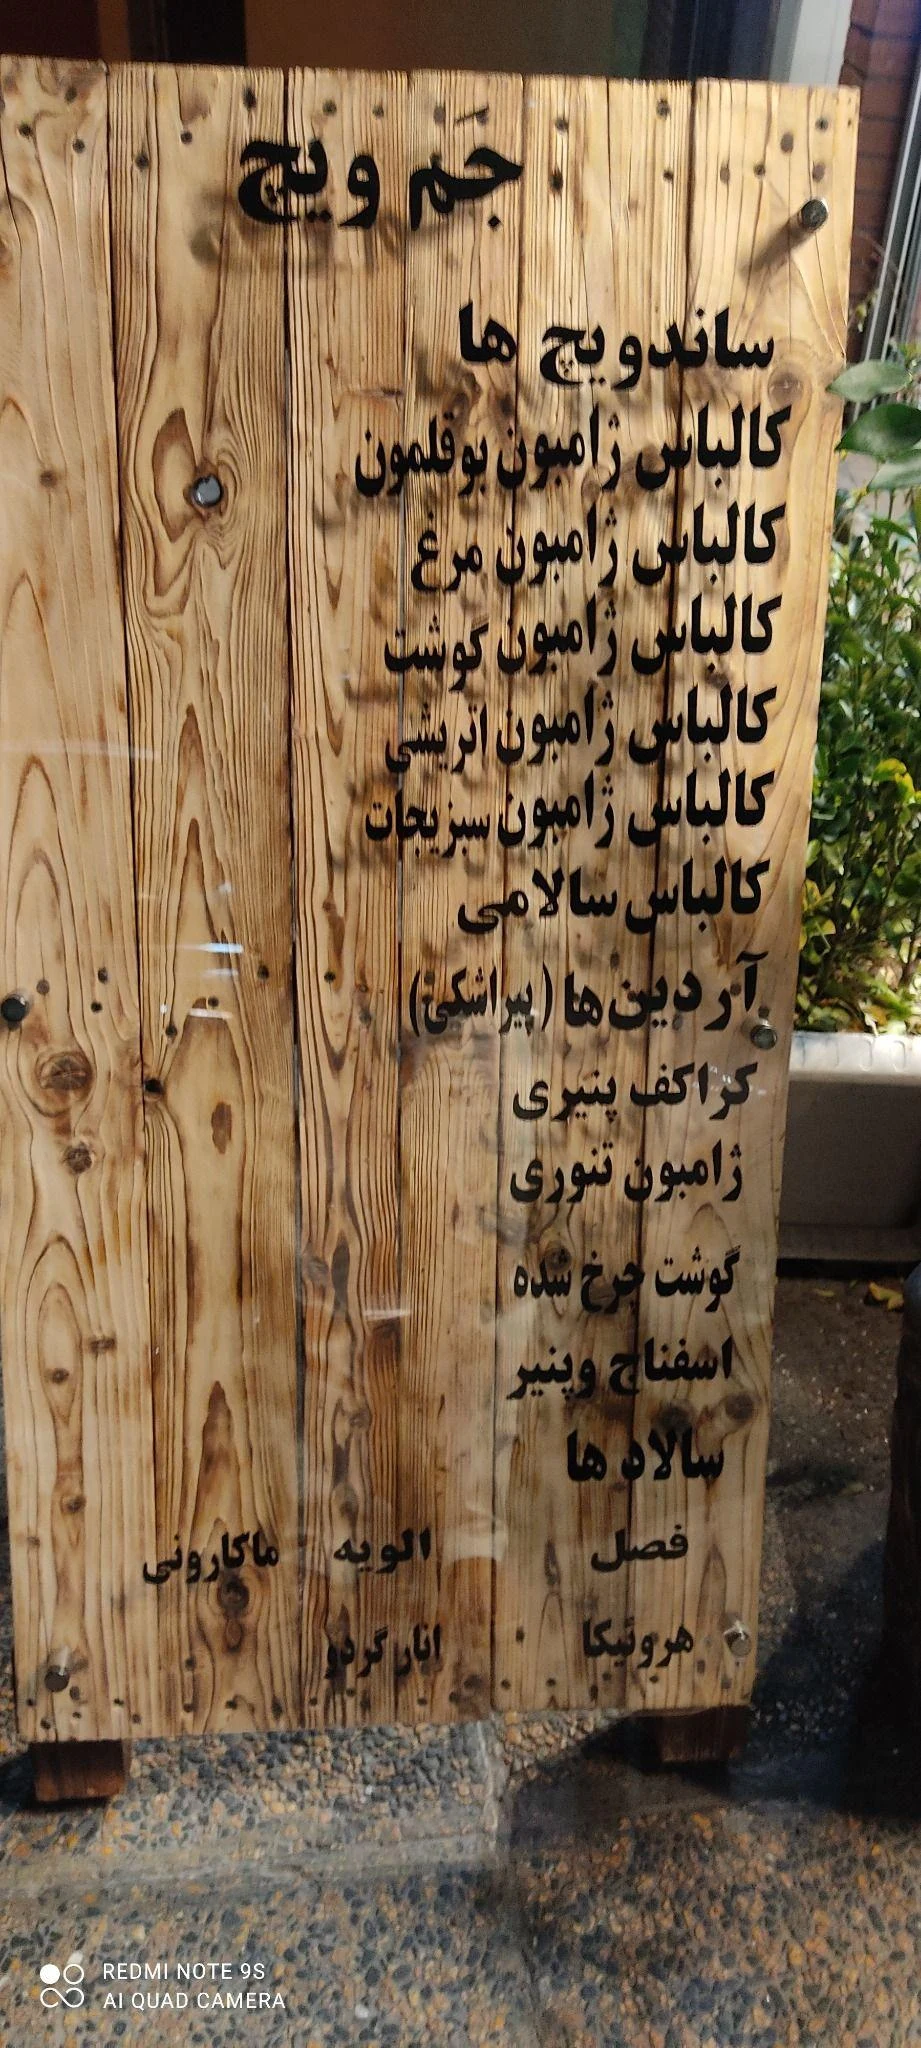 جَم ویچ
ساندویچ ها
کالباس ژامبون بوقلمون
کالباس ژامبون مرغ
کالباس ژامبون گوشت
کالباس ژامبون اتریشی
کالباس ژامبون سبزیجات
کالباس سالامی
آردین ها (پیراشکی)
کراکف پنیری
ژامبون تنوری
گوشت چرخ شده
اسفناج وپنیر
سالاد ها
فصل الویه ماکارونی
هرونیکا انار گردو
REDMI NOTE 9S
AI QUAD CAMERA